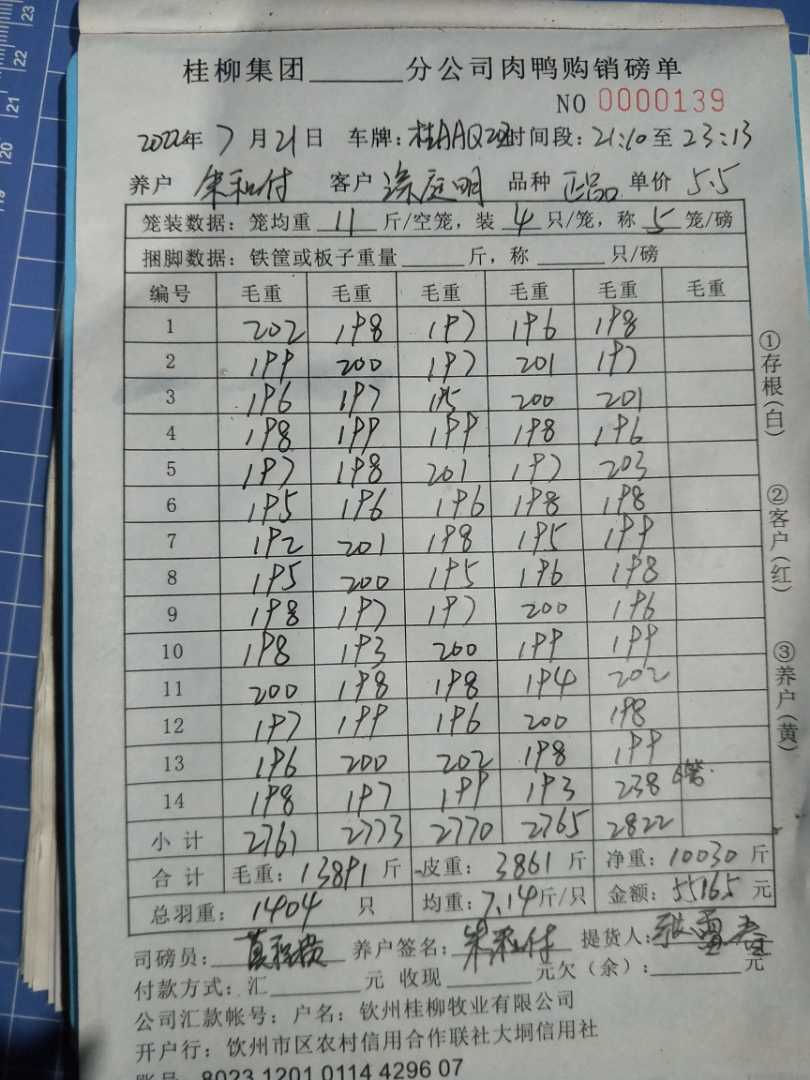 桂柳集团______分公司肉鸭购销磅单
NO 0000139
2022年 7月 21日 车牌:桂AAQ202时间段:21:10至23:13
养户 朱和付 客户 涂庭明 品种 正品 单价 5.5
笼装数据:笼均重 11 斤/空笼,装 4 只/笼,称 5 笼/磅
捆脚数据:铁筐或板子重量______斤,称______只/磅
编号 毛重 毛重 毛重 毛重 毛重 毛重
1 202 198 197 196 198
2 199 200 197 201 197
3 196 197 195 200 201
4 198 199 199 198 196
5 197 198 201 197 203
6 195 196 196 198 198
7 192 201 198 195 199
8 195 200 195 196 198
9 198 197 197 200 196
10 198 193 200 199 199
11 200 198 198 194 202
12 197 199 196 200 198
13 196 200 202 198 199
14 198 197 199 193 238 6笼
小计 2761 2773 2770 2765 2822
合计 毛重:13891斤 皮重:3861斤 净重:10030斤
总羽重:1404 只 均重:7.14斤/只 金额:55165元
司磅员: 养户签名:朱和付 提货人:
付款方式:汇______元 收现______元欠(余):______元
公司汇款帐号:户名:钦州桂柳牧业有限公司
开户行:钦州市区农村信用合作联社大垌信用社
账号 8023 1201 0114 4296 07
①存根(白)
②客户(红)
③养户(黄)
23
22
21
20
19